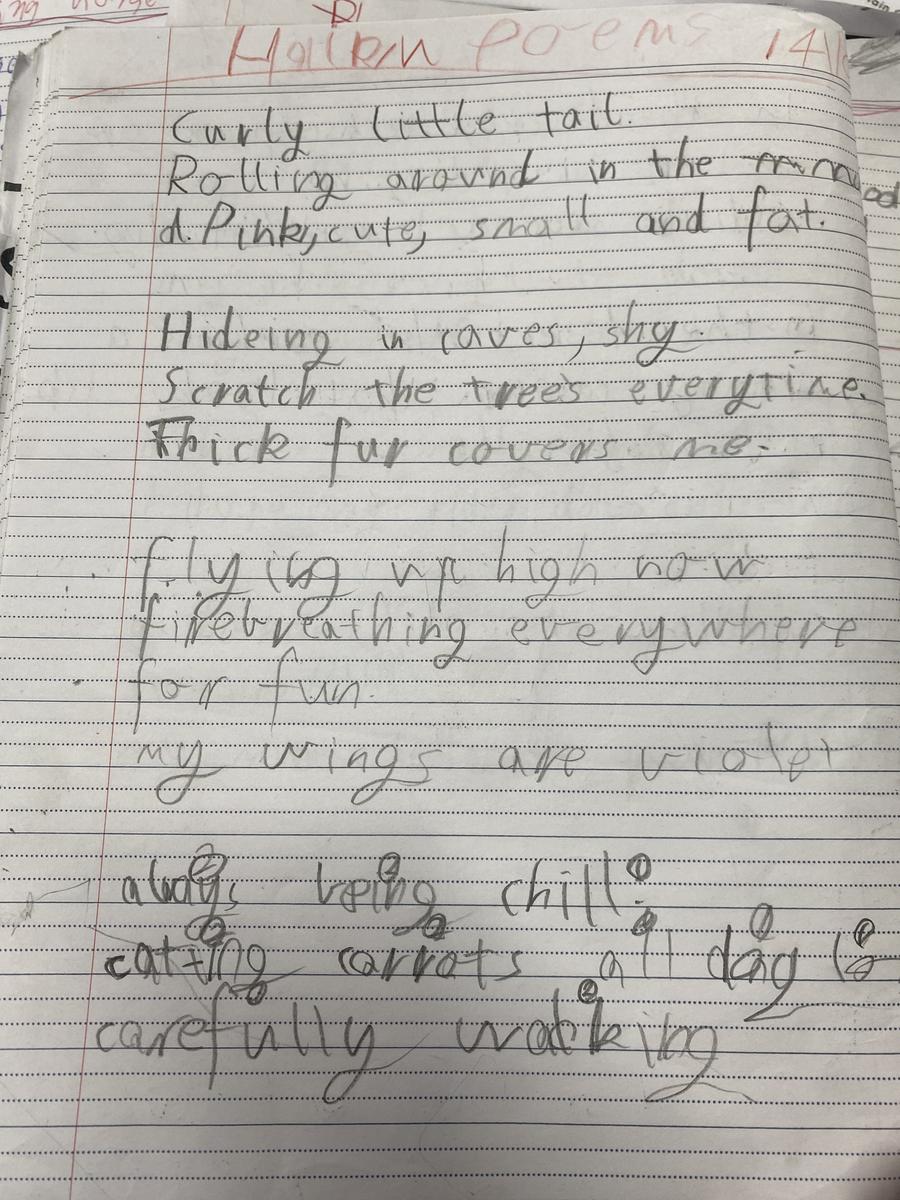 Haikn poems 14
Curly little tail.
Rolling around in the mmmu
d. Pink, cute, small and fat.
Hideing in caves, shy.
Scratch the trees everytime.
Thick fur covers me.
flying up high now
firebreathing everywhere
for fun.
my wings are violet
always being chill
② ② ①
eatting carrots all day
② ② ① ①
carefully walking
②